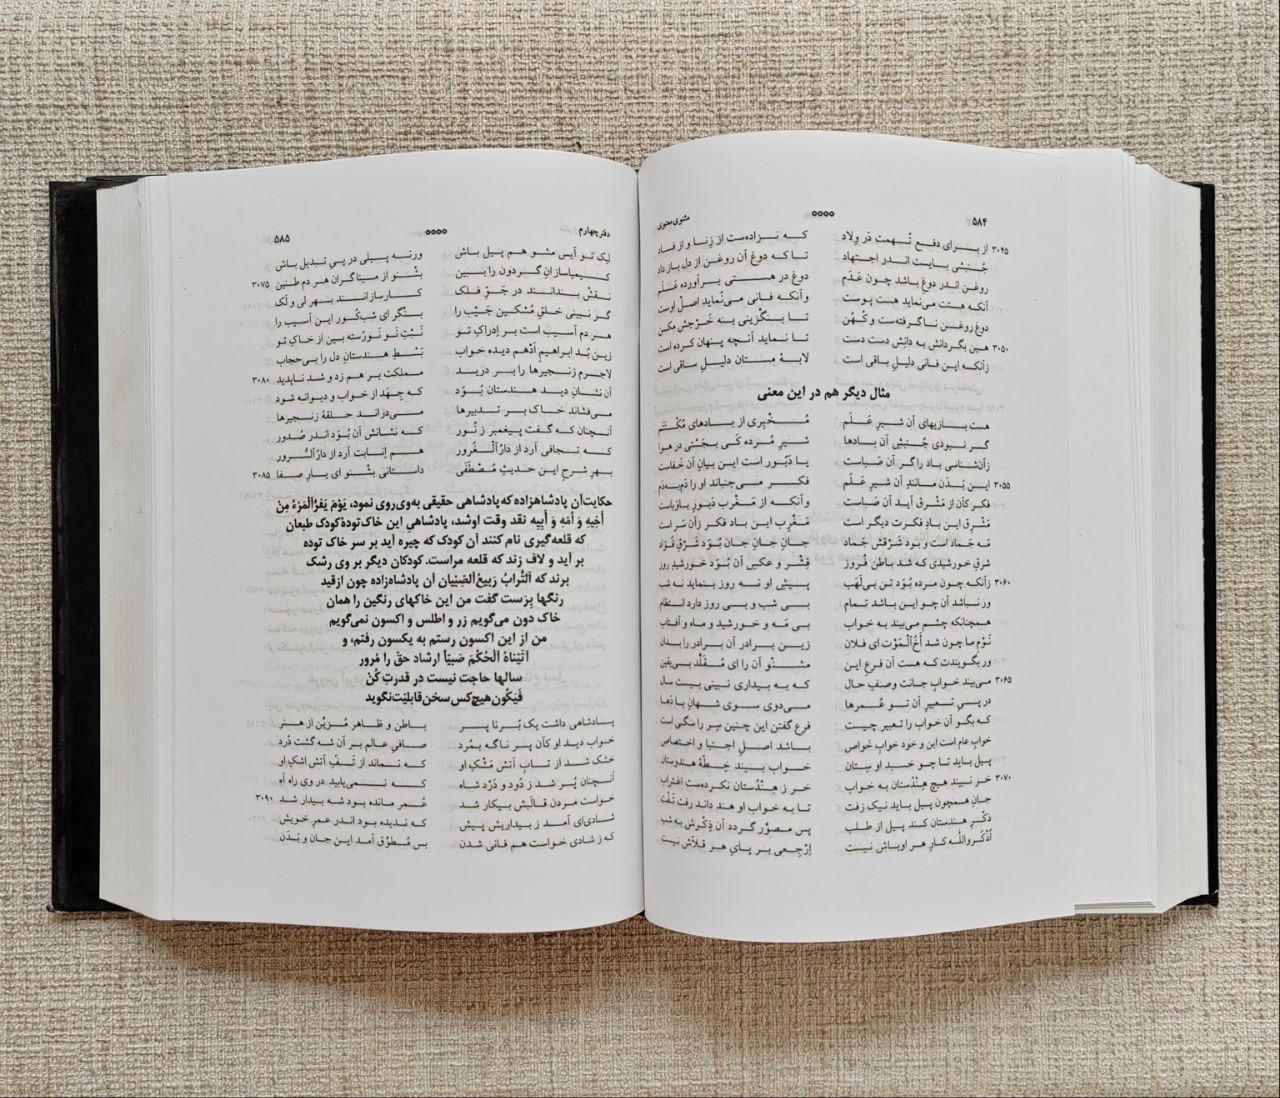 ۵۸۴
مثنوی معنوی
۳۰۴۵ از برای دفع تُهمت دَر وِلاد که نـزاده‌ست از زِنـا و از فـاد
جُنبشی بایست اندر اجتهاد تا که دوغ آن روغن از دل باز داد
روغن اندر دوغ باشد چون عَدَم دوغ در هستی برآورده عَلَم
آنکه هستت می‌نماید هست پوست وآنکه فانی می‌نُماید اصلْ اوست
دوغِ روغن ناگرفته‌ست و کُهُن تا بنگْزینی بنه خَرْجش مکن
۳۰۵۰ هین بگردانش به دانش دست دست تا نماید آنچه پنهان کرده است
زآنکه این فانی دلیلِ باقی است لابهٔ مستان دلیلِ ساقی است
مثال دیگر هم در این معنی
هست بازیهای آن شیرِ عَلَم مُخْبِری از بادهای مُکْتَتَم
گر نبودی جُنبشِ آن بادها شیرِ مُرده کَی بجَستی در هوا
زآن‌شناسی باد را گر آن صَباست یا دَبُور است این بیان آن خفاست
۳۰۵۵ این بَدَن مانندِ آن شیرِ عَلَم فکر می‌جنباند او را دَم‌به‌دَم
فکر کآن از مَشرِق آید آن صَباست وآنکه از مَغْرِب دَبُورِ باوَباست
مَشْرِقِ این بادِ فکرت دیگر است مَغْرِبِ این بادِ فکر زآن سَر است
مَه جَماد است و بود شرقش جَماد جانِ جانِ جان بُوَد شَرْقِ فُؤاد
شرقِ خورشیدی که شد باطن فُروز قِشْر و عکسِ آن بُوَد خورشیدِ روز
۳۰۶۰ زآنکه چون مرده بُوَد تن بی‌لَهَب پیشِ او نه روز بنماید نه شب
ور نباشد آن چو این باشد تمام بی شب و بی روز دارد انتظام
همچنانکه چشم می‌بیند به خواب بی مَه و خورشید و ماه و آفتاب
نَوْمِ ما چون شد اَخُ‌الْمَوْت ای فلان زین برادر آن برادر را بدان
ور بگویندت که هست آن فرعِ این مشْنو آن را ای مُقَلِّد بی‌یقین
۳۰۶۵ می‌بیند خوابِ جانت وصفِ حال که به بیداری نبینی بیست سال
در پیِ تعبیرِ آن تو عُمرها می‌دوی سوی شهانِ با دَها
که بگو آن خواب را تعبیر چیست فرع گفتن این چنین سِر را سگی است
خوابِ عام است این و خود خوابِ خَواص باشد اصلِ اجتبا و اختصاص
پیل باید تا چو خسبد او سِتان خواب بیند خِطّهٔ هندوستان
۳۰۷۰ خر نبیند هیچ هِنْدُستان به خواب خر ز هِنْدُستان نکرده‌ست اغتراب
جانِ همچون پیل باید نیک زفت تا به خواب او هند داند رفت تَفْت
ذکرِ هندستان کند پیل از طلب پس مصوّر گردد آن ذِکْرش به شب
اُذْکُرواالله کارِ هر اوباش نیست اِرْجِعی بر پایِ هر قلّاش نیست
دفتر چهارم
۵۸۵
لیک تو آیس مشو هم پیل باش ورنه پیلی در پیِ تبدیل باش
۳۰۷۵ کیمیاسازانِ گردون را ببین بشْنو از میناگران هر دم طنین
نقش‌بندانند در جَوِّ فلک کارسازانند بهرِ لی و لَک
گر نبینی خلقِ مُشکین جَیْب را بنگر ای شب‌کُور این آسیب را
هر دم آسیب است بر ادراکِ تو نَبْتِ نَو نَورُسته بین از خاکِ تو
زین بُد ابراهیمِ اَدْهَم دیده خواب بَسْطِ هندستانِ دل را بی‌حجاب
۳۰۸۰ لاجرم زنجیرها را بر درید مملکت بر هم زد و شد ناپدید
آن نشانِ دیدِ هندستان بُوَد که جِهَد از خواب و دیوانه شود
می‌فشاند خاک بر تدبیرها می‌دراند حلقهٔ زنجیرها
آنچنان که گفت پیغمبر ز نُور که نشانش آن بُوَد اندر صُدور
که تجافی آرد از دارُالْغُرور هم اِنابت آرد از دارُالسُّرور
۳۰۸۵ بهرِ شرحِ این حدیثِ مُصْطَفی داستانی بشْنو ای یارِ صفا
حکایت آن پادشاهزاده که پادشاهی حقیقی به‌وی‌روی نمود، یَوْمَ یَفِرُّالْمَرْءُ مِنْ
أَخِیهِ وَ أُمِّهِ وَ أَبِیهِ نقد وقت او شد، پادشاهیِ این خاک تودهٔ کودک طبعان
که قلعه‌گیری نام کنند آن کودک که چیره آید بر سر خاک توده
بر آید و لاف زند که قلعه مراست. کودکان دیگر بر وی رشک
برند که اَلتُّرابُ رَبیعُ‌الصِّبْیان آن پادشاه‌زاده چون از قید
رنگها بِرَست گفت من این خاکهای رنگین را همان
خاک دون می‌گویم زر و اطلس و اکسون نمی‌گویم
من از این اکسون رستم به یکسون رفتم، و
آتَیْناهُ الْحُکْمَ صَبِیّاً ارشاد حق را مُرور
سالها حاجت نیست در قدرتِ کُنْ
فَیَکُون هیچ کس سخن قابلیّت نگوید
پادشاهی داشت یک بُرنا پسر باطن و ظاهر مُزیّن از هنر
خواب دید او کآن پسر ناگه بمُرد صافیِ عالم بر آن شه گشت دُرد
خشک شد از تابِ آتش مَشْکِ او که نماند از تَفِّ آتش اشکِ او
آنچنان پُر شد ز دُود و دَرْد شاه که نمی‌یابید در وی راه آه
۳۰۹۰ خواست مردن قالَبش بیکار شد عُمر مانده بود شه بیدار شد
شادی‌ای آمد ز بیداریش پیش که ندیده بود اندر عمرِ خویش
که ز شادی خواست هم فانی شدن بس مُطَوَّق آمد این جان و بَدَن